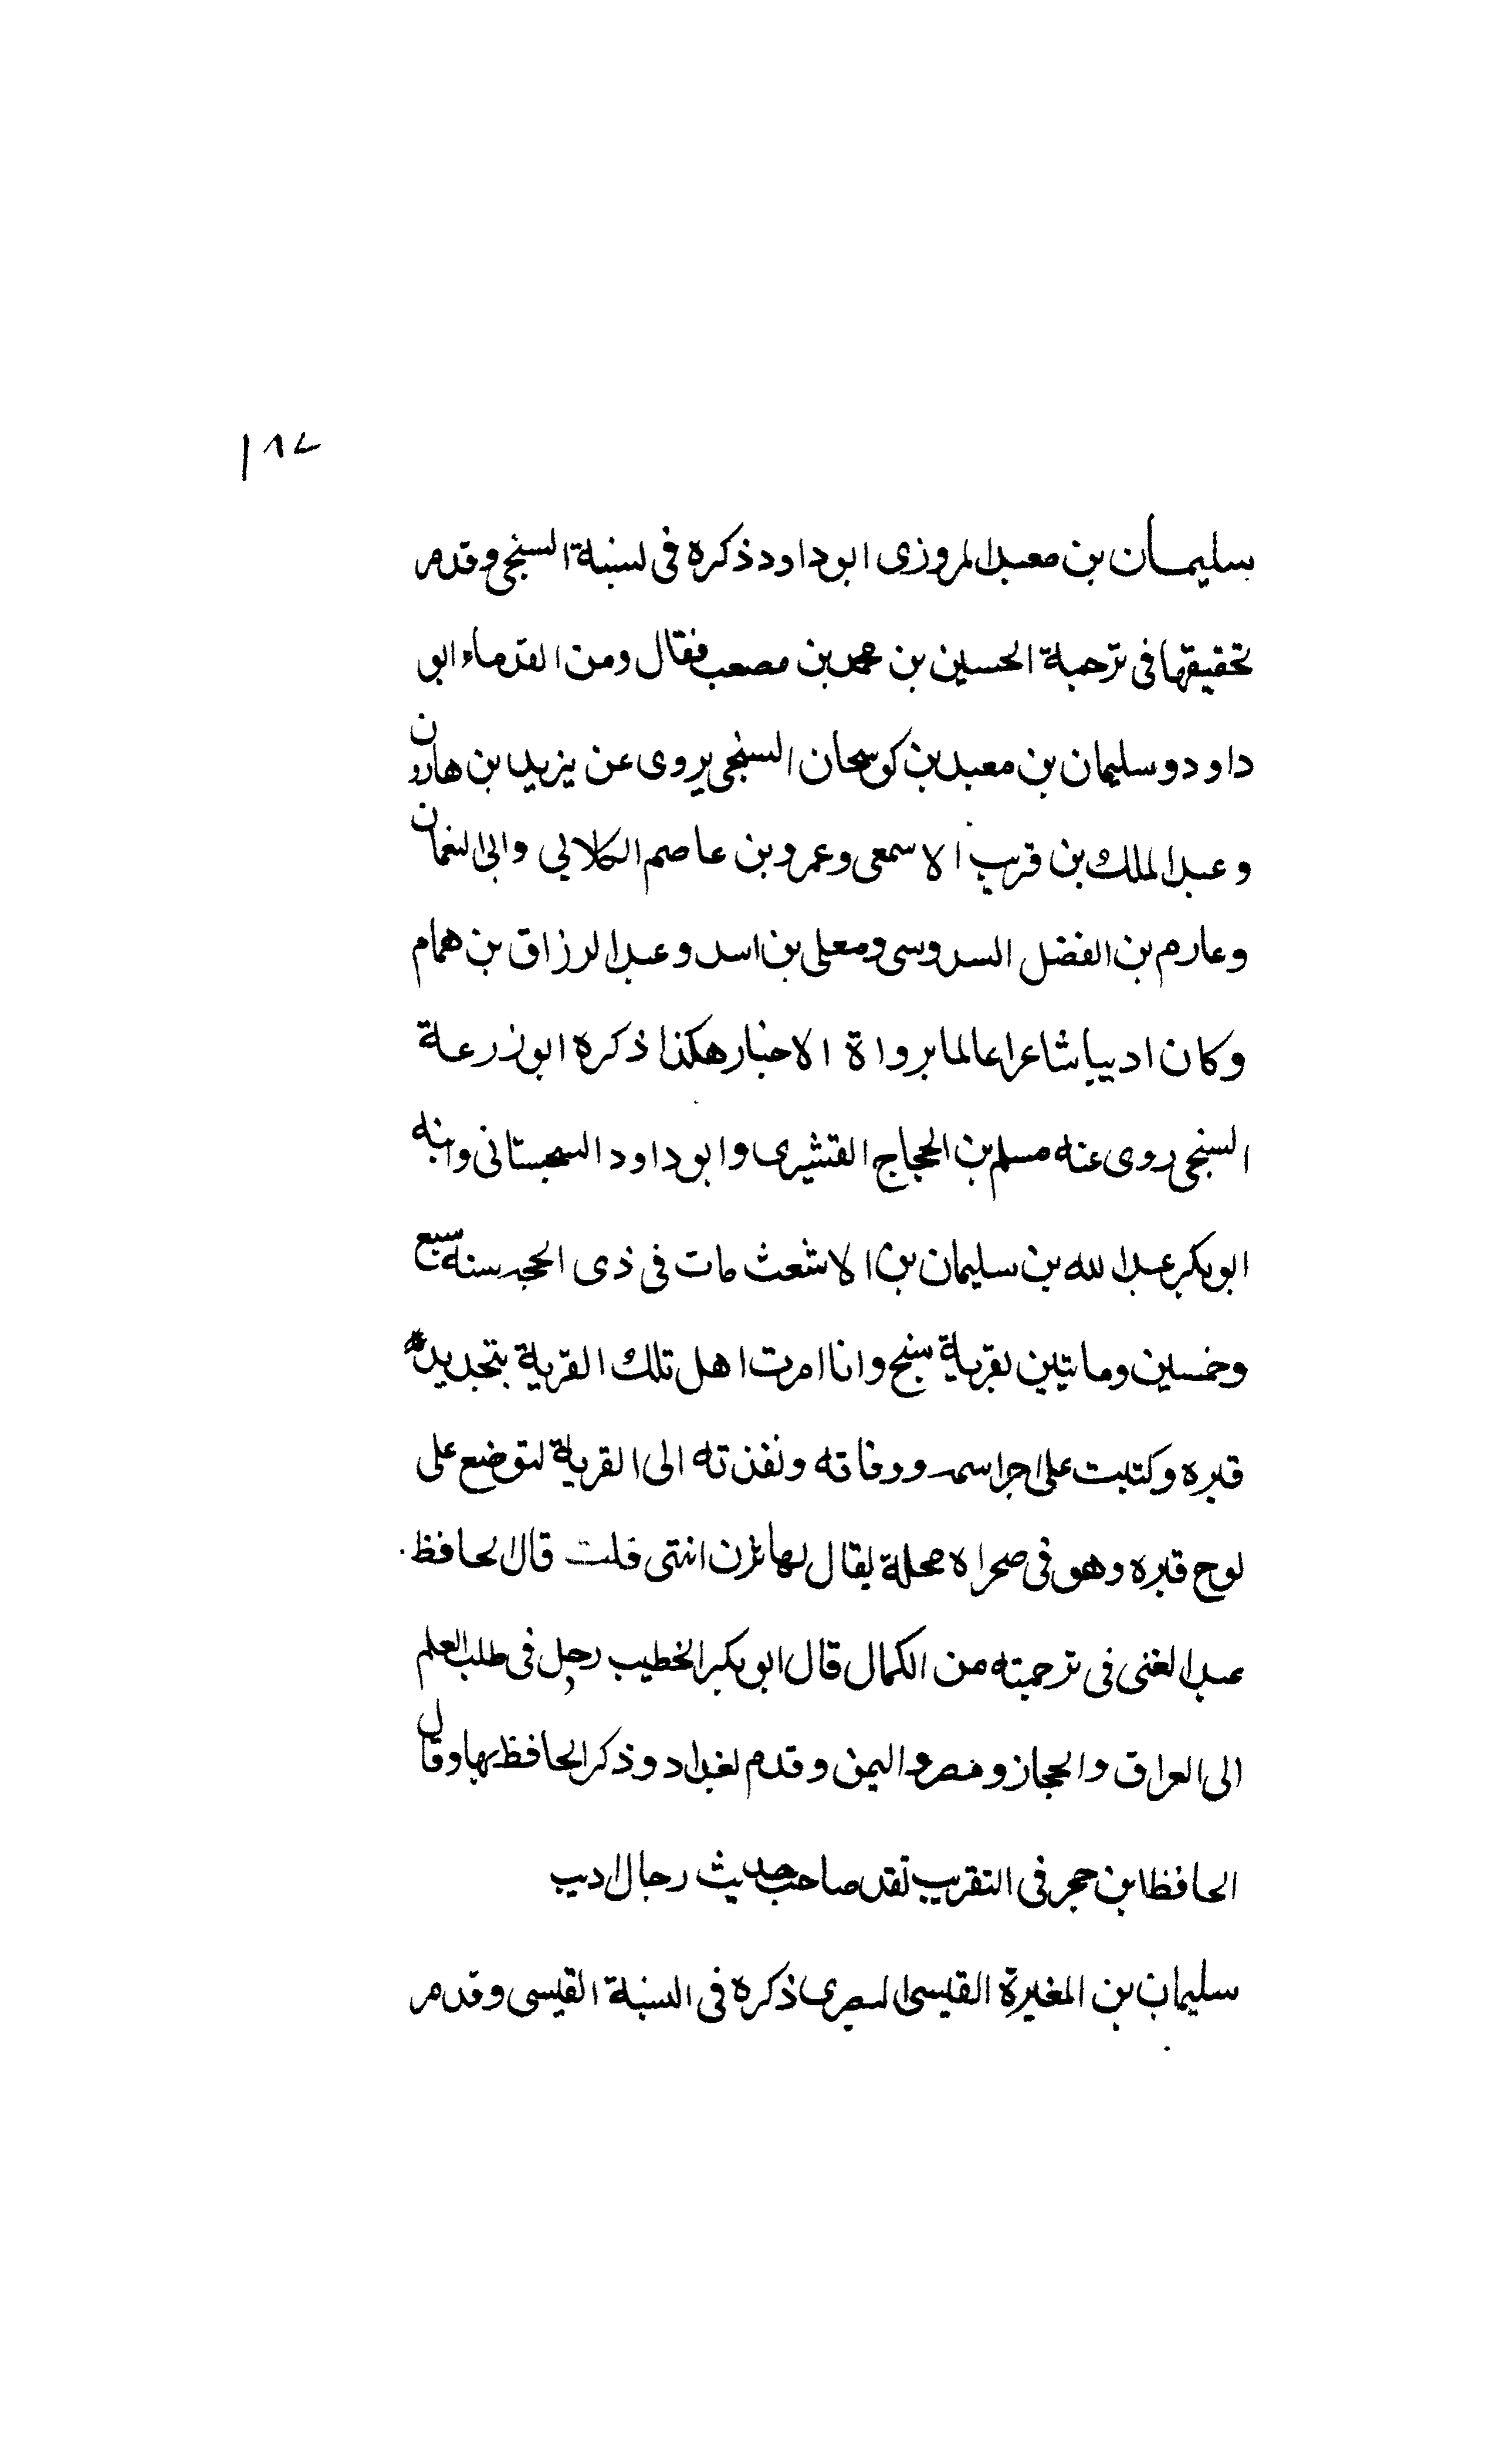 ١٨٧
سليمان بن معبد المروزى ابو داود ذكره فى نسبة السنجى وقدم
تحقيقها فى ترجمة الحسين بن محمد بن مصعب فقال ومن القدماء ابو
داود وسليمان بن معبد بن كوسجان السنجى يروى عن يزيد بن هارون
وعبد الملك بن قريب الاسمعى وعمرو بن عاصم الكلابي وابى النعمان
وعارم بن الفضل السدوسى ومعلى بن اسد وعبد الرزاق بن همام
وكان اديبا شاعرا عالما برواة الاخبار هكذا ذكره ابو زرعة
السنجى روى عنه مسلم بن الحجاج القشيرى وابو داود السجستانى وابنه
ابو بكر عبد الله بن سليمان بن الاشعث مات فى ذى الحجه سنة سبع
وخمسين ومايتين بقرية سنج وانا امرت اهل تلك القرية بتجديد
قبره وكتبت على اجر اسمه ووفاته ونفذته الى القرية لتوضع على
لوح قبره وهو فى صحراه محلة يقال لها قلت قال الحافظ
عبد الغنى فى ترجمته من الكمال قال ابو بكر الخطيب رحل فى طلب العلم
الى العراق والحجاز ومصر واليمن وقدم بغداد وذكر الحافظ بها وقال
الحافظ ابن حجر فى التقريب ثقة صاحب حديث رحال اديب
سليمان بن المغيرة القيسى البصرى ذكره فى النسبة القيسى وقدم